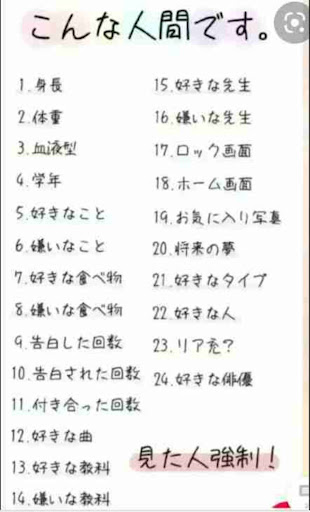 こんな人間です。
1.身長
2.体重
3.血液型
4.学年
5.好きなこと
6.嫌いなこと
7.好きな食べ物
8.嫌いな食べ物
9.告白した回数
10.告白された回数
11.付き合った回数
12.好きな曲
13.好きな教科
14.嫌いな教科
15.好きな先生
16.嫌いな先生
17.ロック画面
18.ホーム画面
19.お気に入り写真
20.将来の夢
21.好きなタイプ
22.好きな人
23.リア充?
24.好きな俳優
見た人強制!